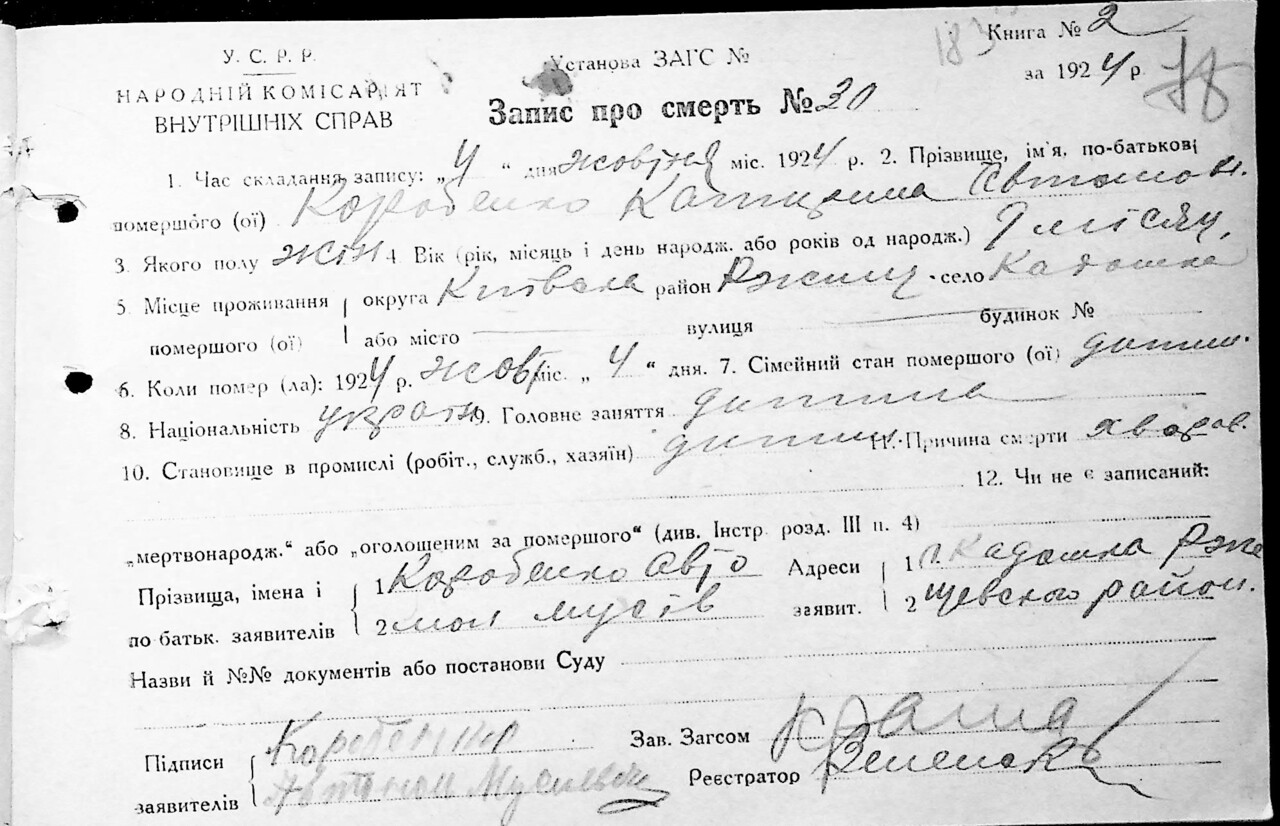 Книга № 2
183
У. С. Р. Р.
Установа ЗАГС №
за 1924 р.
78
НАРОДНІЙ КОМІСАРІЯТ
ВНУТРІШНІХ СПРАВ
Запис про смерть № 20
1. Час складання запису: „4“ дня жовтня міс. 1924 р. 2. Прізвище, ім'я, по-батькові
помершого (ої) Коробенко Катирина Автомон.
3. Якого полу жін 4. Вік (рік, місяць і день народж. або років од народж.) місяц,
5. Місце проживання округа Київска район Ржищ село Кадомка
помершого (ої) або місто вулиця будинок №
6. Коли помер (ла): 1924 р. жовт міс. „4“ дня. 7. Сімейний стан помершого (ої) дитин.
8. Національність україн 9. Головне заняття дитина
10. Становище в промислі (робіт., служб., хазяїн) дитин 11. Причина смерти хвороб.
12. Чи не є записаний:
„мертвонародж.“ або „оголошеним за помершого“ (див. Інстр. розд. III п. 4)
Прізвища, імена і 1 Коробенко Авто Адреси 1 с. Кадомка Рже
по батьк. заявителів 2 мон Мусів заявит. 2 щевского район.
Назви й №№ документів або постанови Суду
Підписи Коробенко Зав. Загсом
заявителів Автомон Мусиевич Реєстратор